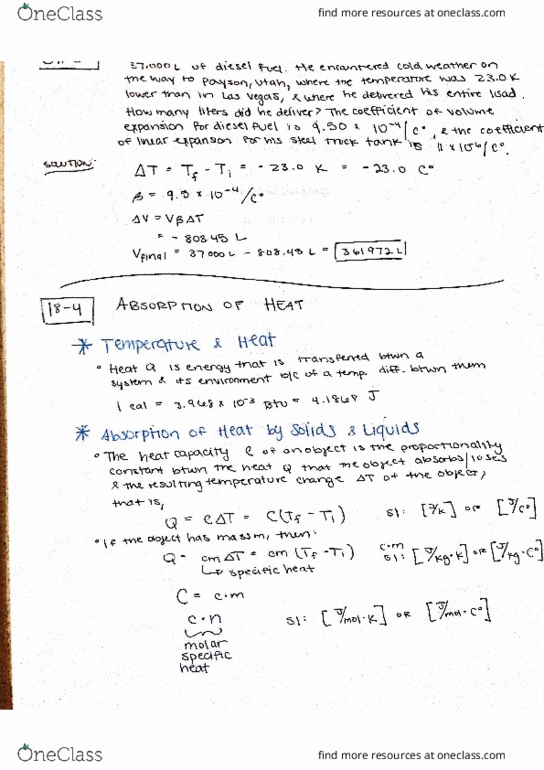 OneClass
find more resources at oneclass.com
37,000 L of diesel fuel. He encountered cold weather on
the way to Payson, Utah, where the temperature was 23.0 K
lower than in Las Vegas, & where he delivered his entire load.
How many liters did he deliver? The coefficient of volume
expansion for diesel fuel is 9.50 x 10⁻⁴/C°, & the coefficient
of linear expansion for his steel truck tank is 11 x 10⁻⁶/C°.
SOLUTION:
ΔT = Tf - Ti = -23.0 K = -23.0 C°
β = 9.5 x 10⁻⁴/C°
ΔV = VβΔT
= -808.45 L
Vfinal = 37000 L - 808.45 L = 36197.2 L
18-4 ABSORPTION OF HEAT
* Temperature & Heat
• Heat Q is energy that is transferred btwn a
system & its environment b/c of a temp. diff. btwn them
1 cal = 3.968 x 10⁻³ Btu = 4.1868 J
* Absorption of Heat by Solids & Liquids
• The heat capacity C of an object is the proportionality
constant btwn the heat Q that the object absorbs/loses
& the resulting temperature change ΔT of the object,
that is,
Q = CΔT = C(Tf - Ti) SI: [J/K] or [J/C°]
• If the object has mass m, then:
Q = cmΔT = cm (Tf - Ti) c·m SI: [J/kg·K] or [J/kg·C°]
↳ specific heat
C = c·m
c·n SI: [J/mol·K] or [J/mol·C°]
molar
specific
heat
OneClass
find more resources at oneclass.com